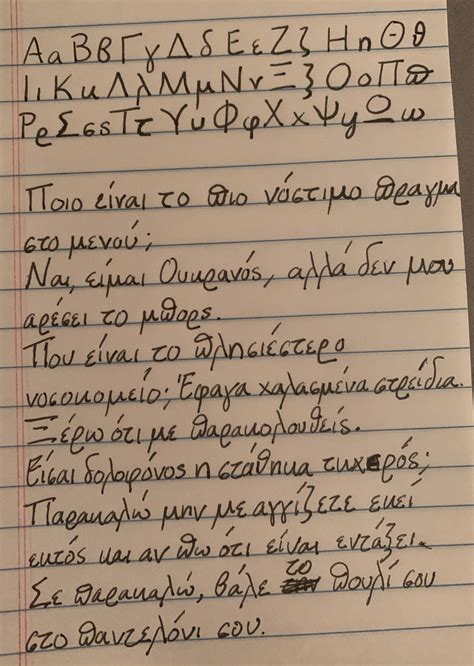 ΑαΒβΓγΔδΕεΖζΗηΘθ
ΙιΚκΛλΜμΝνΞξΟοΠπ
ΡρΣσςΤτΥυΦφΧχΨψΩω
Ποιο είναι το πιο νόστιμο πράγμα
στο μενού;
Ναι, είμαι Ουκρανός, αλλά δεν μου
αρέσει το μπορς.
Που είναι το πλησιέστερο
νοσοκομείο; Έφαγα χαλασμένα στρείδια.
Ξέρω ότι με παρακολουθείς.
Είσαι δολοφόνος η στάθηκα τυχερός;
Παρακαλώ μην με αγγίζετε εκεί
εκτός και αν πω ότι είναι εντάξει.
Σε παρακαλώ, βάλε το πουλί σου
στο παντελόνι σου.